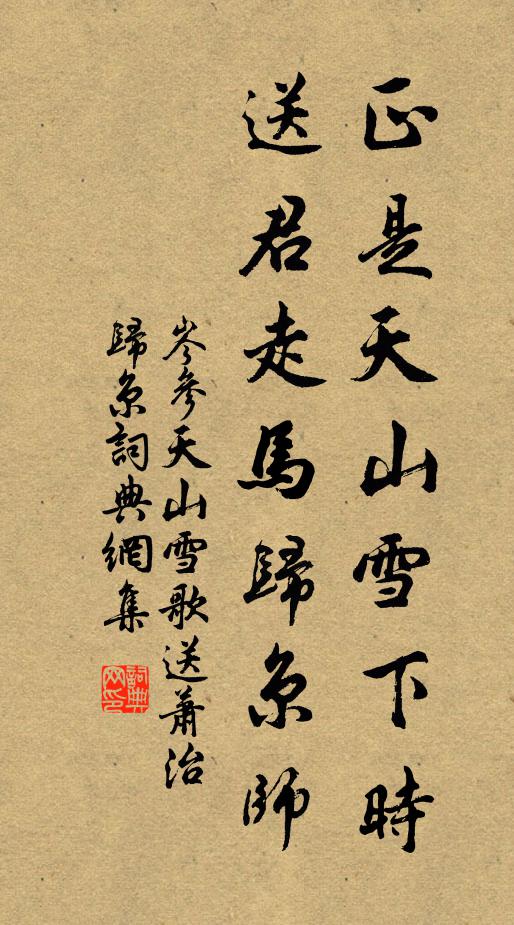 正是天山雪下時
送君走馬歸京師
岑參天山雪歌送蕭治
歸京詞典網集
詞典
网印